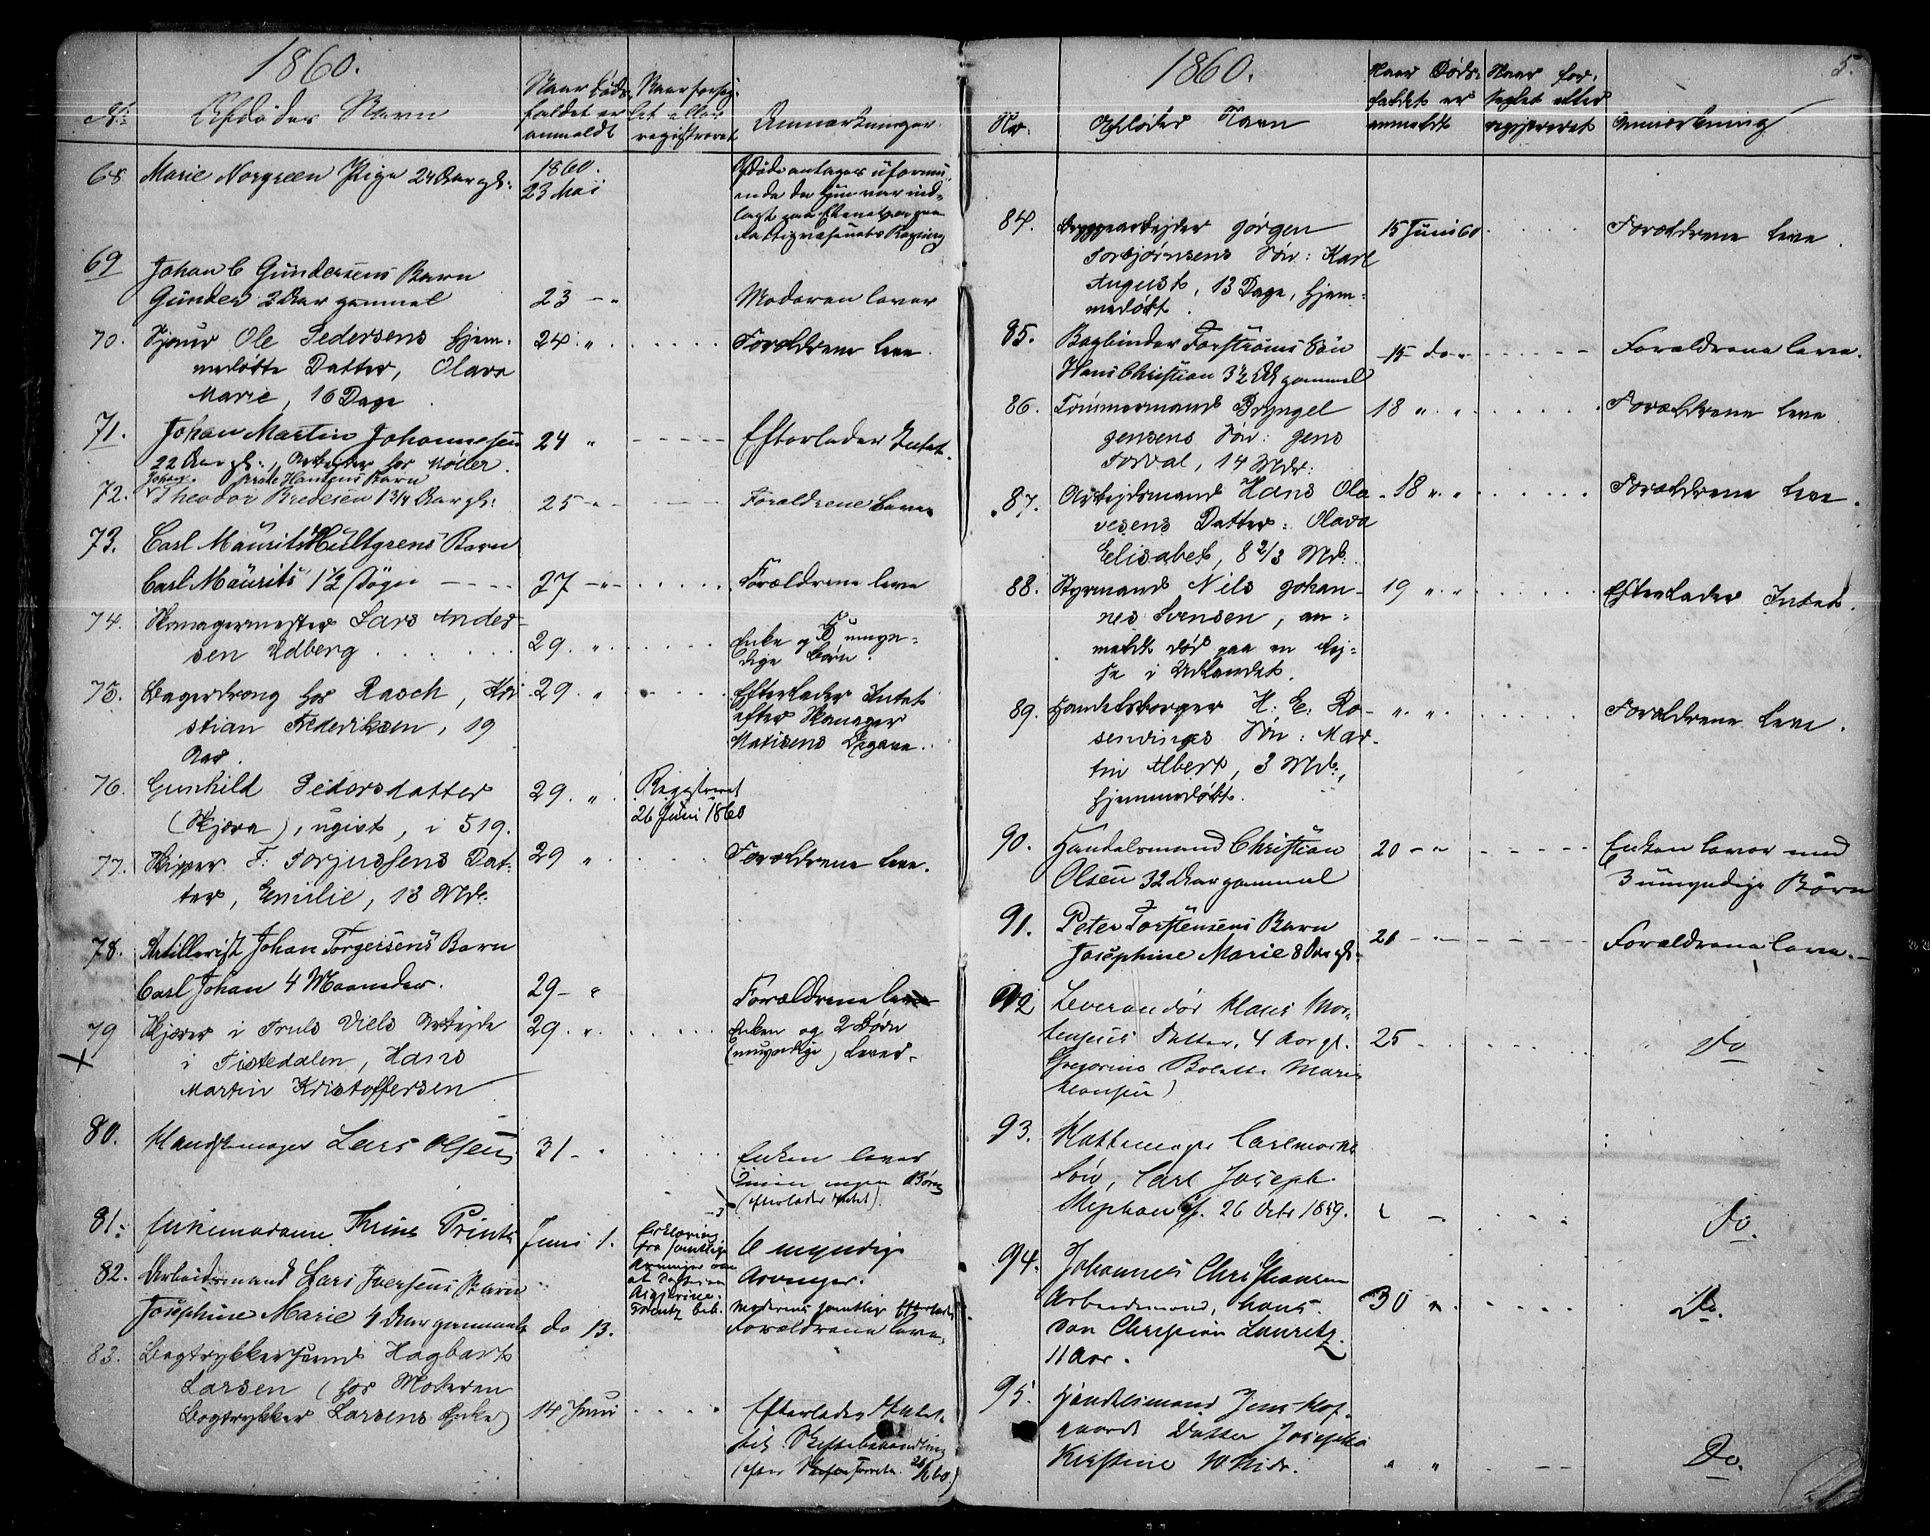 1860.
No
Afdødes Navn
Naar Døds-
faldet er
anmeldt
Naar forseg-
let eller
registreret
Anmærkninger
68 Marie Norgreen Pige 24 Aar gl:
1860.
23 Mai
69 Johan C Gundersens Barn
Gunder 2 Aar gammel
23 - "
Moderen lever
70. Ole Pedersens hjem-
medøbte Datter, Olava
Marie, 16 Dage.
24. "
Forældrene leve.
71. Johan Martin Johannesen
22 Aar gl:, Arbeider hos Møller.
24 "
Efterlader Intet.
72. Theodor Bredesen 1 3/4 Aar gl:
25 - "
Forældrene Leve
73. Carl Maurits Hultgrens Barn
Carl Maurits 1 1/2 Døgn
27 - "
Forældrene leve
74. Skomagermester Lars Ander-
sen Udberg
29. "
Enke og 5 umyn-
dige Børn.
75. Bagerdreng hos Rasch, Kri-
stian Frederiksen, 19
Aar.
29. "
Efterlader Intet
efter Skomager
Matisens Opgave.
76. Gunhild Pedersdatter
(Skjæra), ugivt, i 519.
29. "
Registreret
26 Juni 1860
77. Skipper F: Torjussens Dat-
ter, Emilie, 13 Mdr.
29 "
Forældrene leve.
78. Artillerist Johan Torgersens Barn
Carl Johan 4 Maaneder.
29 - "
Forældrene leve
79 i Truls Viels Arbeide
i Tistedalen, Hans
Martin Kristoffersen
29. "
Enken og 2 Børn
(umyndige) Lever.
80. Lars Olsen
31 - "
Enken lever
ingen Børn
(efterlader Intet)
81. Enkemadame Trine Printz
Juni 1.
Erklæring
fra samtlige
Arvinger om
at
6 myndige
Arvinger.
82. Arbeidsmand Lars Iversens Barn
Josephine Marie 4 Aar gammel
do 13.
Forældrene leve.
83. Bogtrykkersvend Hagbart
Larsen (hos Moderen
Bogtrykker Larsens Enke)
14 Juni
Efterlader Intet
til Skiftebehandling
(efter
1860.
5.
No.
Afdødes Navn
Naar Døds-
faldet er
anmeldt
Naar for-
seglet eller
registreret
Anmærkning
84. Bryggearbejder Jørgen
Torbjørnsens Søn: Karl
August, 13 Dage, hjem-
medøbt.
15 Juni 60
Forældrene leve.
85. Bogbinder Forstrøms Søn
Hans Christian 3 1/2 Aar gammel
15 do
Forældrene leve.
86. Tømmermand Bryngel
Jensens Søn: Jens
Torval, 14 Mdr.
18 " "
Forældrene leve
87. Arbejdsmand Hans Ola-
vesens Datter: Olava
Elisabet, 8 2/3 Md.
18 " "
Forældrene leve.
88. Styrmand Nils Johan-
nes Svensen, an-
meldt død paa en Rej-
se i Udlandet.
19 " "
Efterlader Intet.
89. Handelsborger H. E. Ro-
senvinges Søn: Mar-
tin Albert, 3 Md.,
hjemmedøbt.
" "
Forældrene leve.
90. Handelsmand Christian
Olsen 32 Aar gammel
20 - "
Enken lever med
3 umyndige Børn
91. Peter Torstensens Barn
Josephine Marie 8 Aar gl.
21 - "
Forældrene leve.
92 Leverandør Klaus Mor-
tensens Datter, 4 Aar gl.
Gregorine Bolette Marie
Klausen)
25 -
Do
93. Hattemager Carlmarks
Søn, Carl Joseph
Stephan f. 26 Octb 1859.
" -
Do.
94. Johannes Christiansen
Arbeidsmand, hans
Søn Christian Lauritz
11 Aar.
30 "
Do.
95. Handelsmand Jens Hof-
gaards Datter Josepha
Kristine 10 Mdr.
" "
Do.